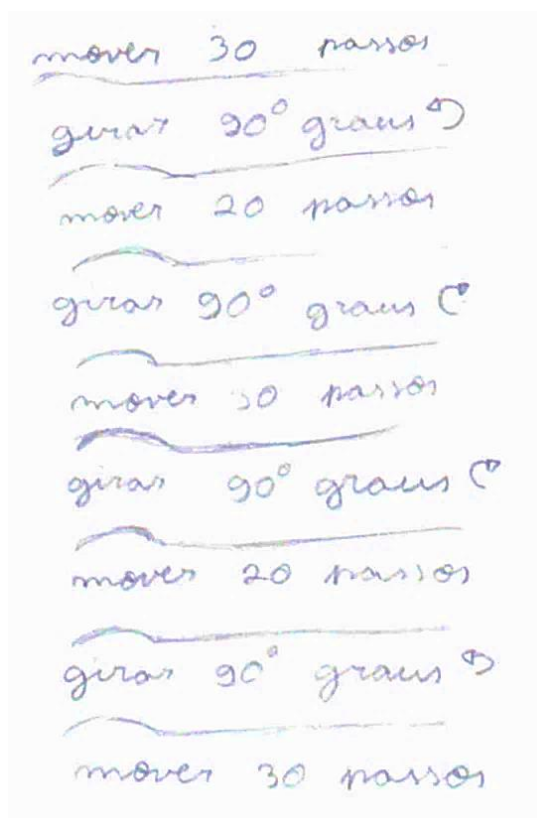 mover 30 passos
girar 90° graus ↶
mover 20 passos
girar 90° graus ↷
mover 30 passos
girar 90° graus ↷
mover 20 passos
girar 90° graus ↶
mover 30 passos